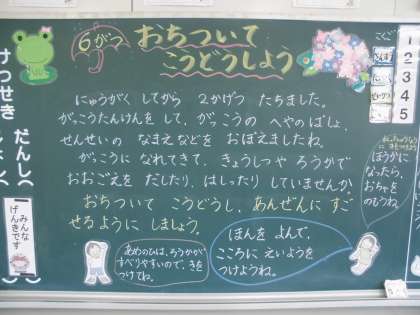 6がつ
おちついて
こうどうしよう
にゅうがく してから 2かげつ たちました。
がっこうたんけんを して、がっこうの へやのばしょ、
せんせいの なまえなどを おぼえましたね。
がっこうに なれてきて、きょうしつや ろうかで
おおごえを だしたり、はしったり していませんか。
おちついて こうどうし、あんぜんに すご
せるように しましょう。
あめのひは、ろうかが
すべりやすいので、きを
つけてね。
ほんを よんで、
こころに えいようを
つけようね。
けっせき
だんし
みんな
げんきです
こくご
1
2
3
4
5
ほうかに
なったら、
おちゃを
のもうね。